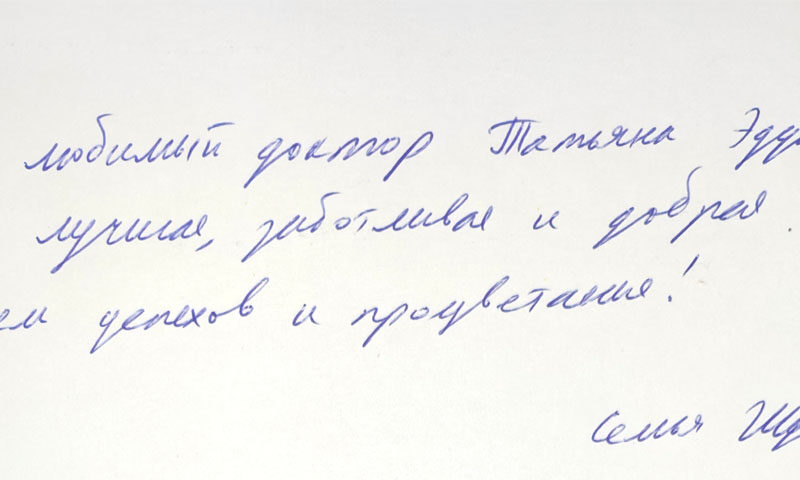 любимый доктор Татьяна Эдд
лучшая, заботливая и добрая
ем успехов и процветания!
Семья